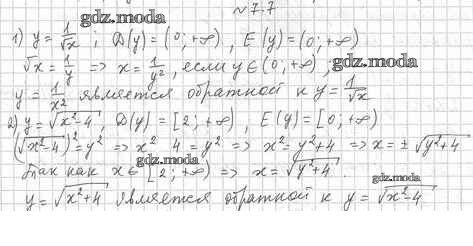 № 7.7
gdz.moda
1) y = 1/√x ; D(y) = (0; +∞), E(y) = (0; +∞)
√x = 1/y => x = 1/y², если y ∈ (0; +∞),
gdz.moda
y = 1/x² является обратной к y = 1/√x
gdz.moda
2) y = √x²-4, D(y) = [2; +∞), E(y) = [0; +∞)
(√x²-4)² = y² => x² 4 = y² => x² = y²+4 => x = ± √y²+4
gdz.moda
Так как x ∈ [2; +∞) => x = √y²+4.
gdz.moda
y = √x²+4 является обратной к y = √x²-4